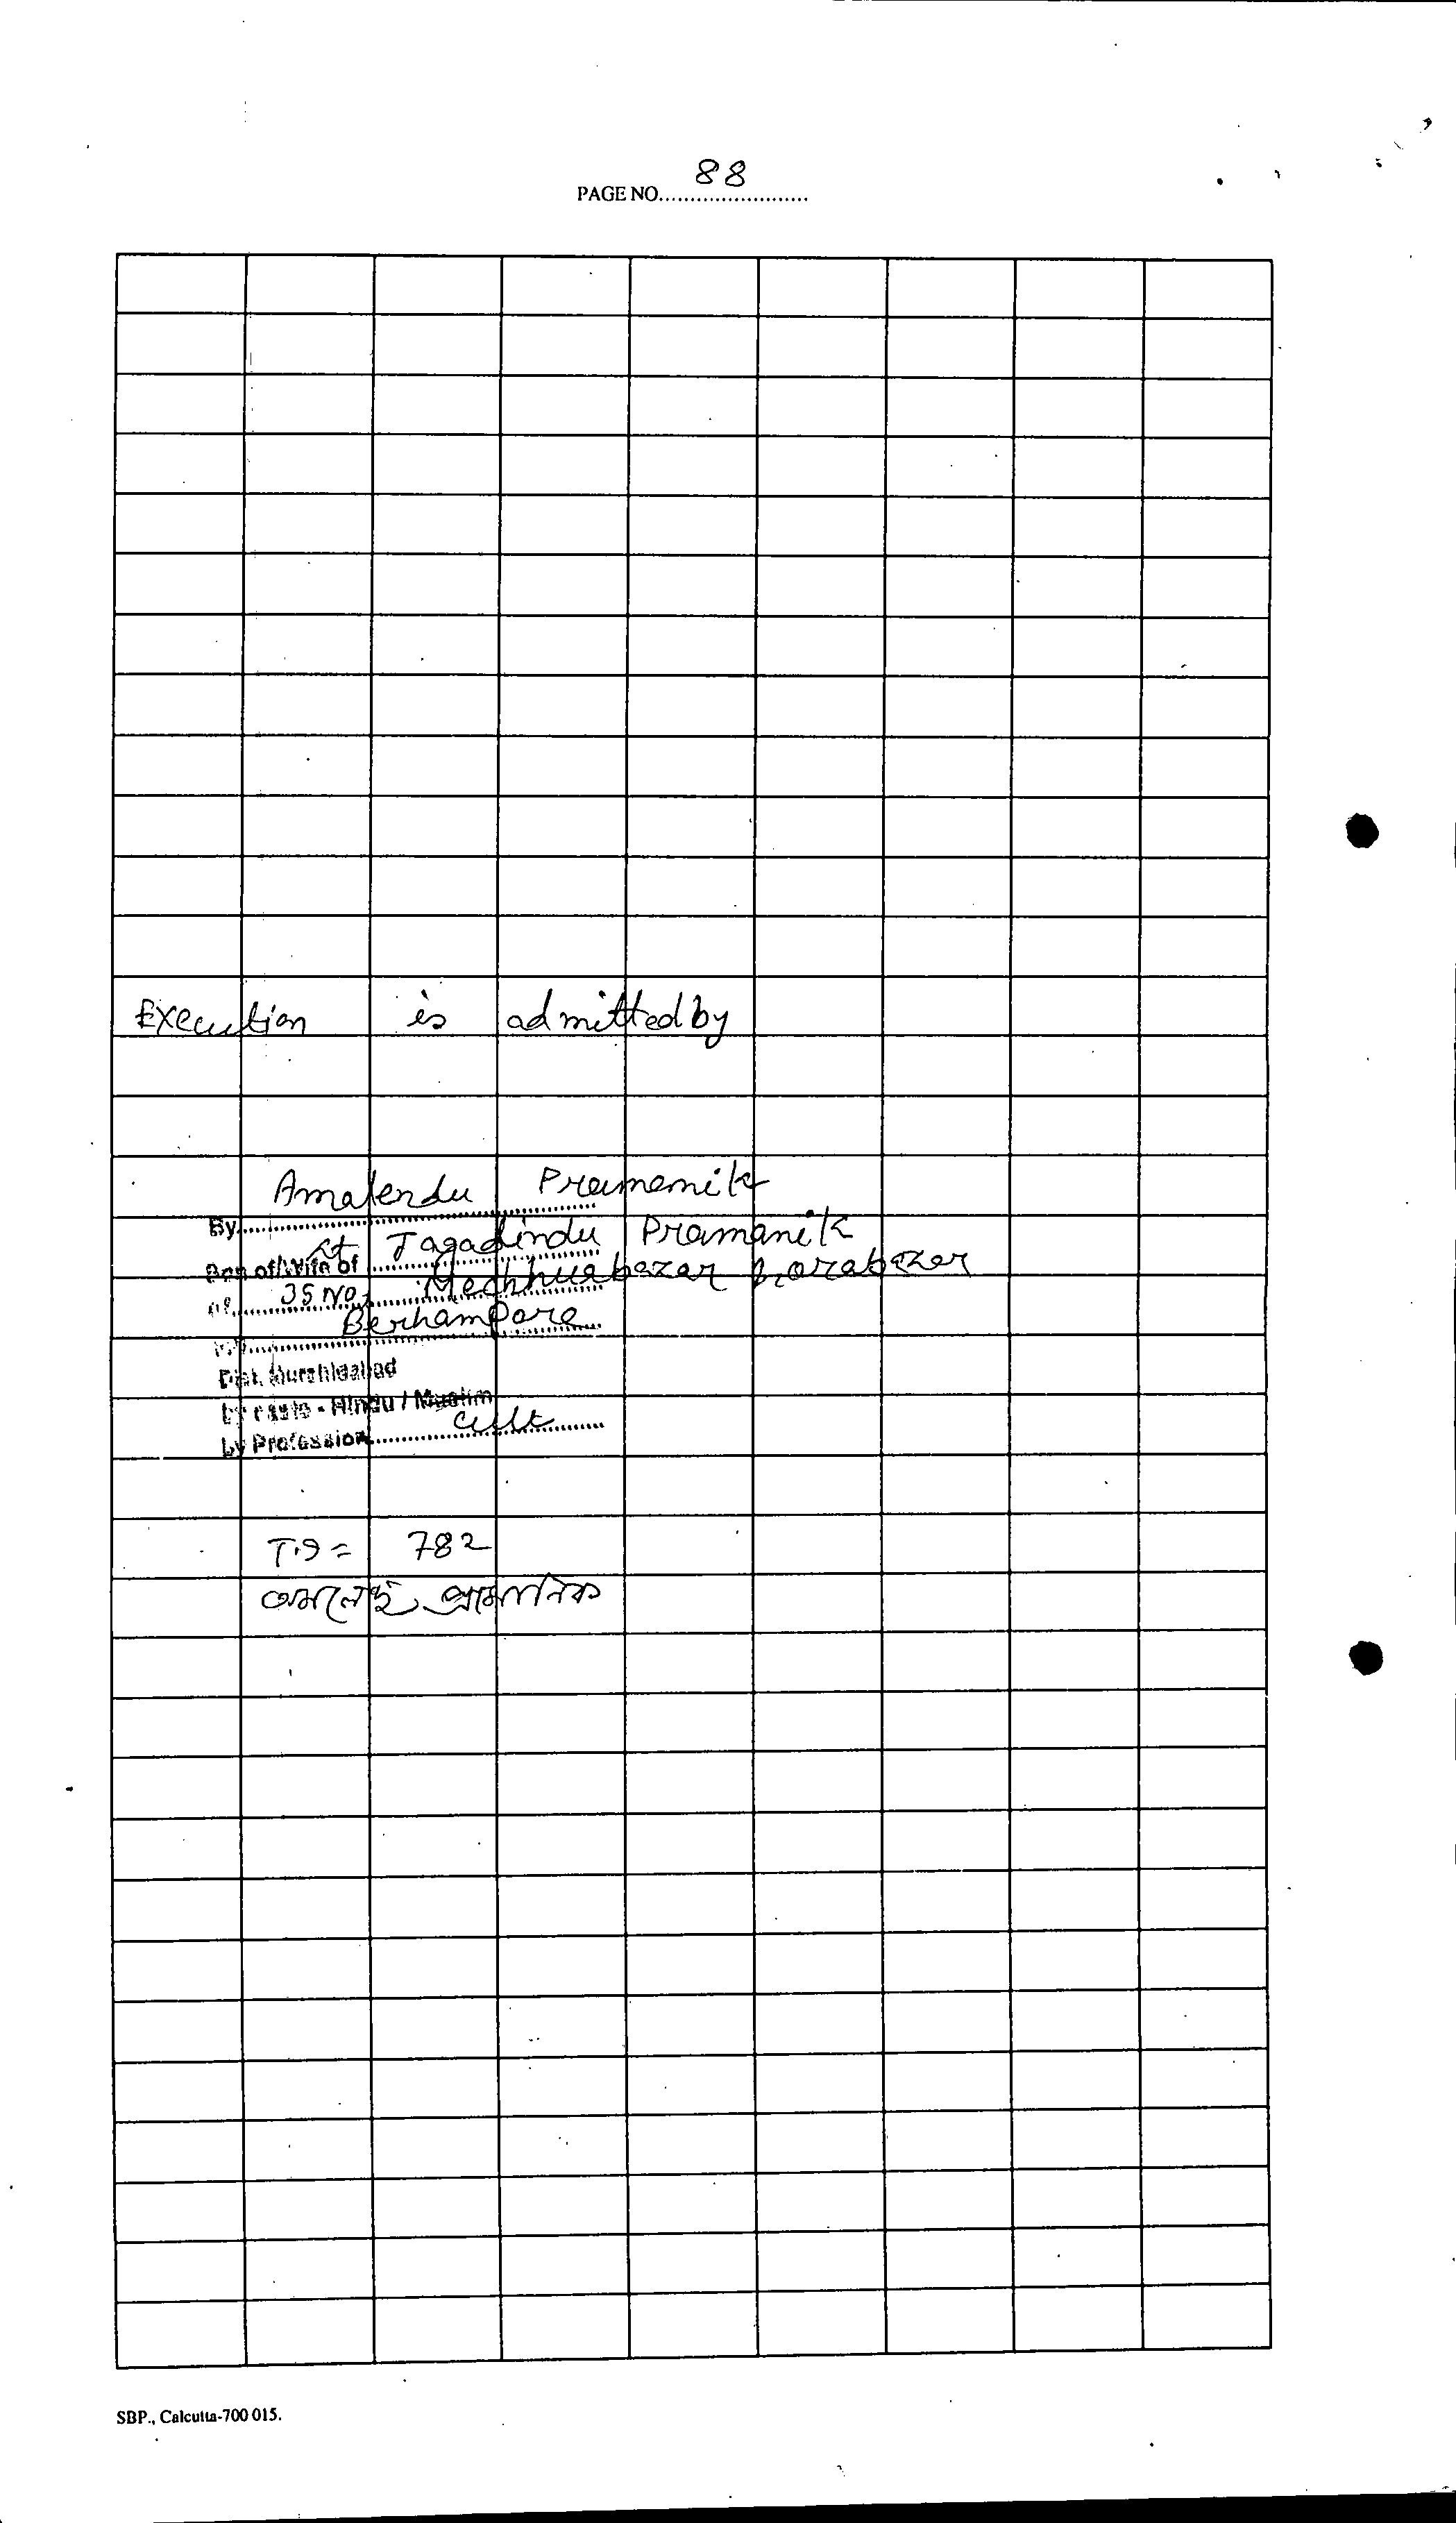 88
PAGE NO........................
Execution is admitted by
Amalendu Pramanik
By
Lt. Jagadindu Pramanik
Son of/Wife of
of 35 No. Mechhuabazar Borabazar
Berhampore
P.O.
Dist. Murshidabad
by caste - Hindu / Muslim
by Profession cult
T.I = 782
অমলেন্দু প্রামানিক
SBP., Calcutta-700 015.